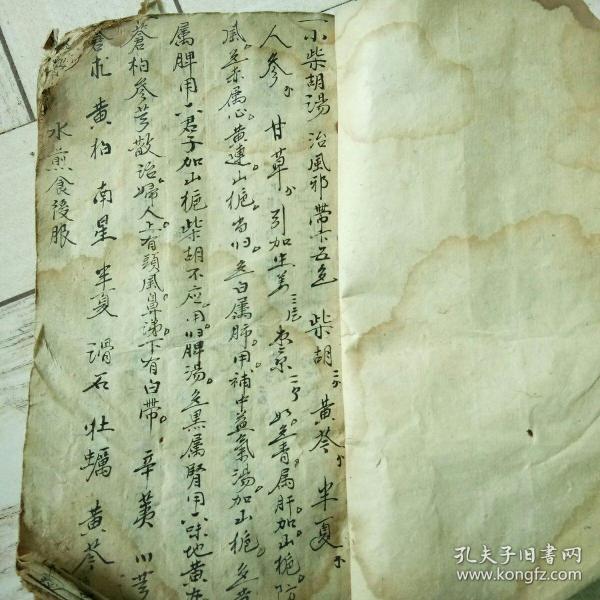 小柴胡湯 治風邪帶下五色 柴胡 黃芩 半夏
人參 甘草 引加生姜三片 棗 如色青屬肝加山梔防
風色赤屬心黃連山梔當归色白屬肺用補中益氣湯加山梔色黃
屬脾用六君子加山梔柴胡不應用归脾湯色黑屬腎用六味地黃
蒼柏參芎散治婦人上有頭風鼻涕下有白帶 辛荑 川芎
蒼朮 黃柏 南星 半夏 滑石 牡蠣 黃芩
水煎食後服
孔夫子旧书网
www.kongfz.com